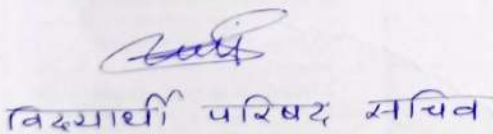 विद्यार्थी परिषद सचिव